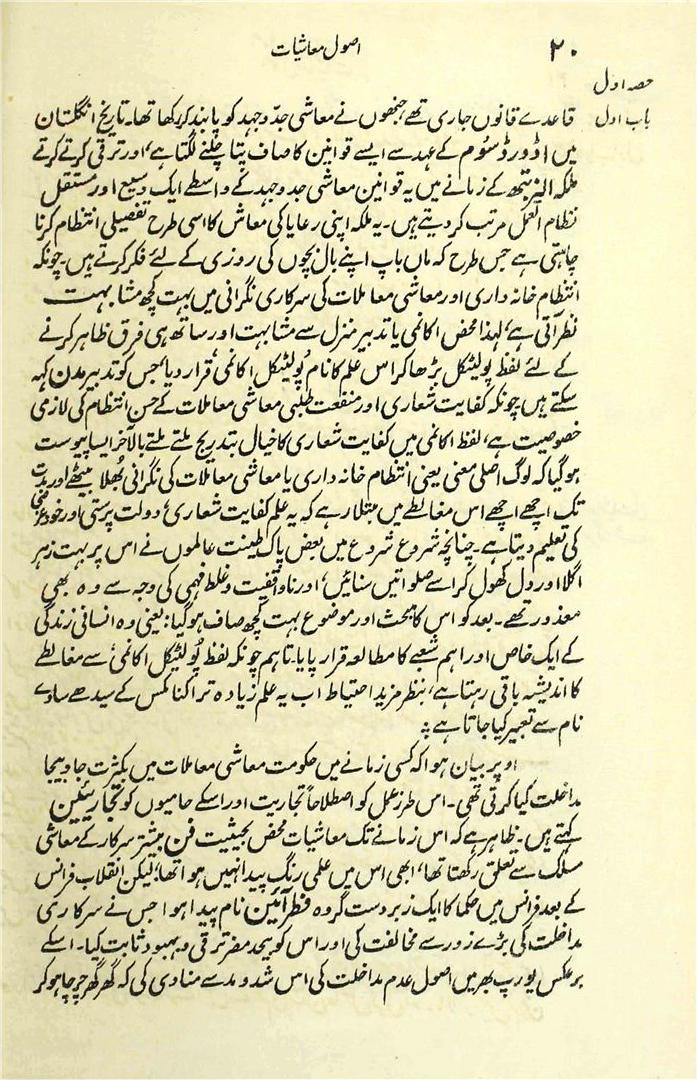 ۲۰
اصول معاشیات
حصہ اول
باب اول
قاعدے قانون جاری تھے، جنھوں نے معاشی جدّ وجہد کو پابند کر رکھا تھا۔ تاریخ انگلستان
میں اڈورڈ سوُم کے عہد سے ایسے قوانین کا صاف پتا چلنے لگتا ہے، اور ترقی کرتے کرتے
ملکہ الزبتھ کے زمانے میں یہ قوانین معاشی جدوجہد کے واسطے ایک وسیع اور مستقل
نظام العمل مرتب کردیتے ہیں۔ یہ ملکہ اپنی رعایا کی معاش کا اسی طرح تفصیلی انتظام کرنا
چاہتی ہے جس طرح کہ ماں باپ اپنے بال بچوں کی روزی کے لئے فکر کرتے ہیں۔ چونکہ
انتظام خانہ داری اور معاشی معاملات کی سرکاری نگرانی میں بہت کچھ مشابہت
نظر آتی ہے، لہذا محض اکانمی یا تدبیر منزل سے مشابہت اور ساتھ ہی فرق ظاہر کرنے
کے لئے لفظ پولٹیکل بڑھا کر اس علم کا نام پُولٹیکل اکانمی قرار دیا، جس کو تدبیر مدن کہہ
سکتے ہیں۔ چونکہ کفایت شعاری اور منفعت طلبی معاشی معاملات کے حسن انتظام کی لازمی
خصوصیت ہے، لفظ اکانمی میں کفایت شعاری کا خیال بتدریج ملتے ملتے بالآخر ایسا پیوست
ہوگیا کہ لوگ اصلی معنی یعنی انتظام خانہ داری یا معاشی معاملات کی نگرانی بُھلا بیٹھے اور مدت
تک اچھے اچھے اس مغالطے میں مبتلا رہے کہ یہ علم کفایت شعاری، دولت پرستی، اور خودغرضی
کی تعلیم دیتا ہے۔ چنانچہ شروع شروع میں بعض پاک طینت عالموں نے اس پر بہت زہر
اگلا اور دل کھول کر اسے صلواتیں سنائیں، اور ناواقفیت وغلط فہمی کی وجہ سے وہ بھی
معذور تھے۔ بعد کو اس کا مبحث اور موضوع بہت کچھ صاف ہوگیا: یعنی وہ انسانی زندگی
کے ایک خاص اور اہم شعبے کا مطالعہ قرار پایا۔ تاہم چونکہ لفظ پُولٹیکل اکانمی سے مغالطے
کا اندیشہ باقی رہتا ہے، بنظر مزید احتیاط اب یہ علم زیادہ تر اکنامکس کے سیدھے سادے
نام سے تعبیر کیا جاتا ہے ؛
اوپر بیان ہوا کہ کسی زمانے میں حکومت معاشی معاملات میں بکثرت جاوبیجا
مداخلت کیا کرتی تھی۔ اس طرز عمل کو اصطلاحاً تجاریت اور اسکے حامیوں کو تجاریئین
کہتے ہیں۔ ظاہر ہے کہ اس زمانے تک معاشیات محض بحیثیت فن بیشتر سرکار کے معاشی
مسلک سے تعلق رکھتا تھا، ابھی اس میں علمی رنگ پیدا نہیں ہوا تھا؛ لیکن انقلاب فرانس
کے بعد فرانس میں حکما کا ایک زبردست گروہ فطرآئین نام پیدا ہوا جس نے سرکاری
مداخلت کی بڑے زور سے مخالفت کی اور اس کو بیحد مضر ترقی و بہبود ثابت کیا۔ اسکے
برعکس یورپ بھر میں اصول عدم مداخلت کی اس شدومد سے منادی کی کہ گھر گھر چرچا ہوکر